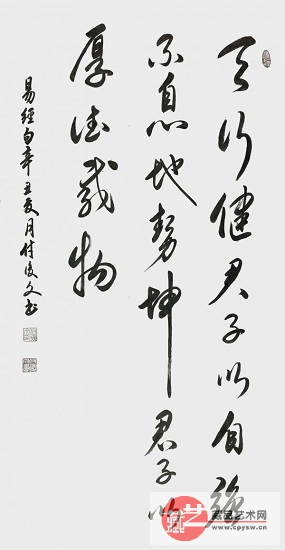 天行健君子以自强
不息地势坤君子以
厚德载物
易经句辛丑夏月付俊文书
藏品艺术网
www.cpysw.cn